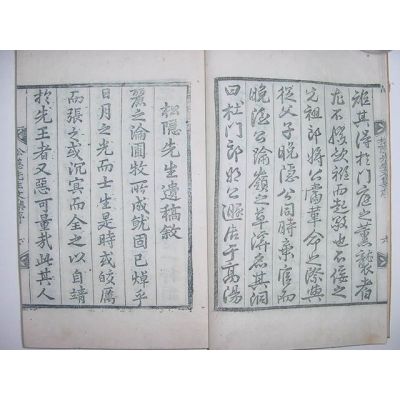 雖其得於門庭之薰襲者
尤不勝欽雅而起敬也不佞之
先祖郎將公當革命之際與
從父子晩隱公同時棄官而
晩隱公踰嶺之草溪名其洞
曰杜門郎將公遯居于高陽
松隱先生遺稿敘
麗之淪圃牧所成就固已焯乎
日月之光而士生是時或皎厲
而張之或沉冥而全之以自靖
於先王者又惡可量哉此其人